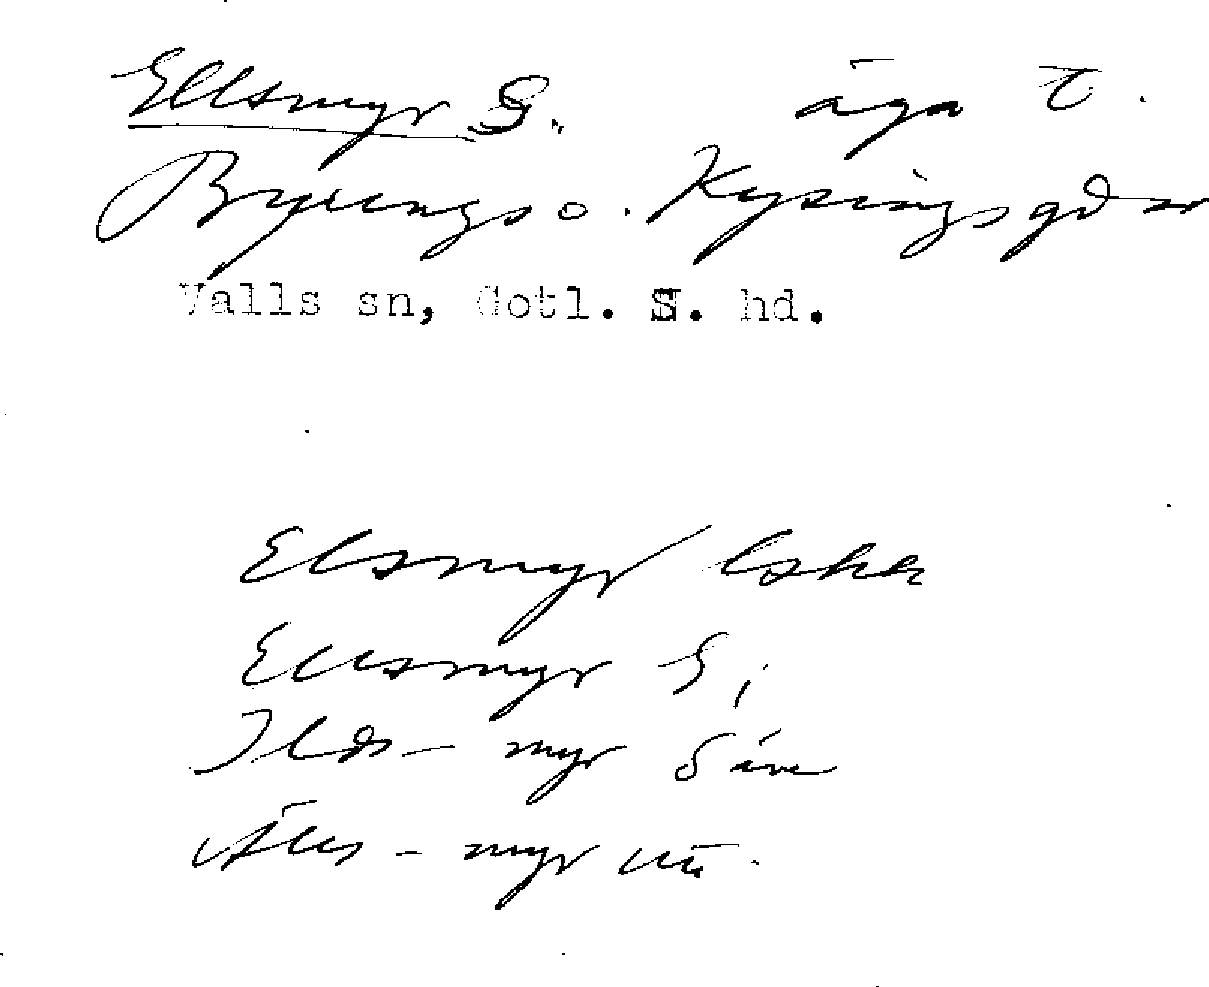 Ellsmyr S. äga t.
Byrungs o. Kysings gdar
Valls sn, Gotl. S. hd.
Elsmyr
Ellsmyr S;
Ilds- myr Säve
Älls - myr